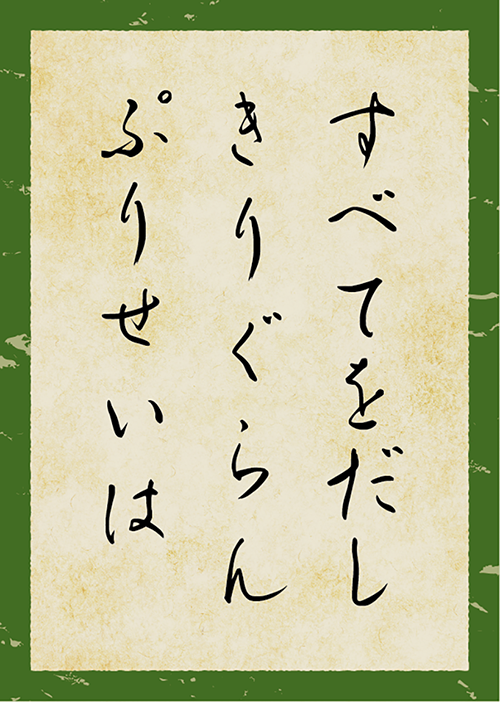 すべてをだし
きりぐらん
ぷりせいは